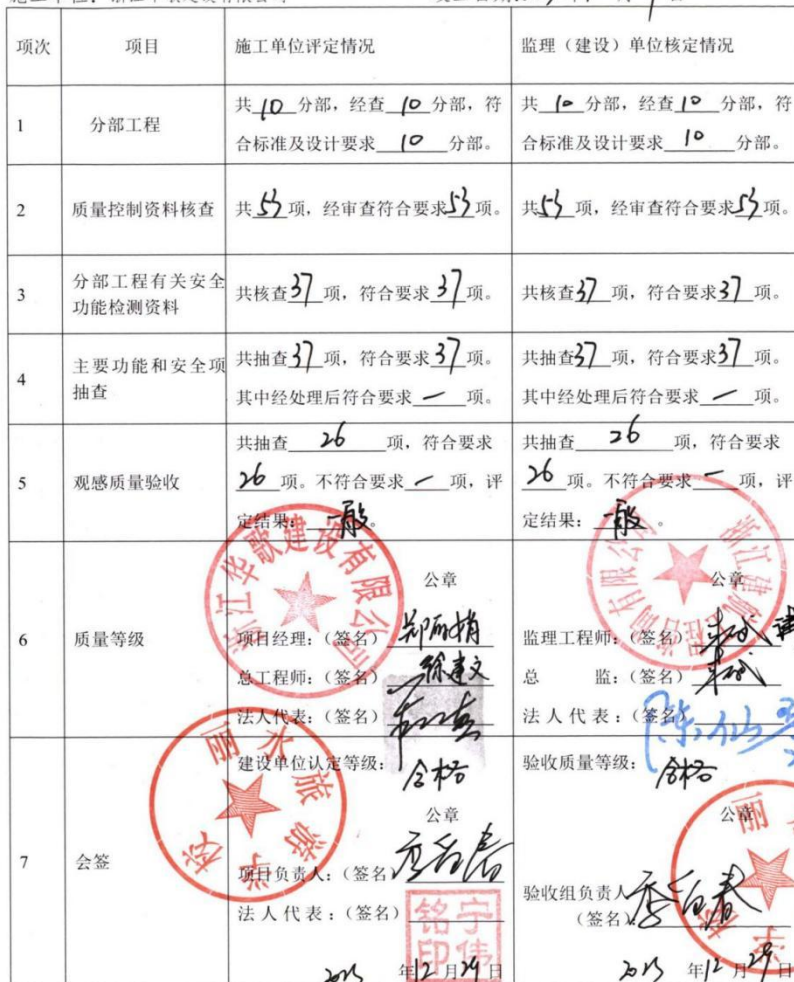 项次 项目 施工单位评定情况 监理（建设）单位核定情况
1 分部工程
共 10 分部，经查 10 分部，符
合标准及设计要求 10 分部。
共 10 分部，经查 10 分部，符
合标准及设计要求 10 分部。
2 质量控制资料核查 共 53 项，经审查符合要求 53 项。 共 53 项，经审查符合要求 53 项。
3 分部工程有关安全
功能检测资料
共核查 37 项，符合要求 37 项。 共核查 37 项，符合要求 37 项。
4 主要功能和安全项
抽查
共抽查 37 项，符合要求 37 项。
其中经处理后符合要求 一 项。
共抽查 37 项，符合要求 37 项。
其中经处理后符合要求 一 项。
5 观感质量验收
共抽查 26 项，符合要求
26 项。不符合要求 一 项，评
定结果：一般。
共抽查 26 项，符合要求
26 项。不符合要求 一 项，评
定结果：一般。
6 质量等级
浙江华歌建设有限公司
公章
项目经理：（签名）
总工程师：（签名）徐建文
法人代表：（签名）
公章
监理工程师：（签名）
总 监：（签名）
法人代表：（签名）
7 会签
丽水旅游学校
建设单位认定等级：
合格
公章
项目负责人：（签名）
法人代表：（签名）
宁伟铭印
年12月29日
验收质量等级：
合格
公章
丽
验收组负责人
（签名）
年12月29日